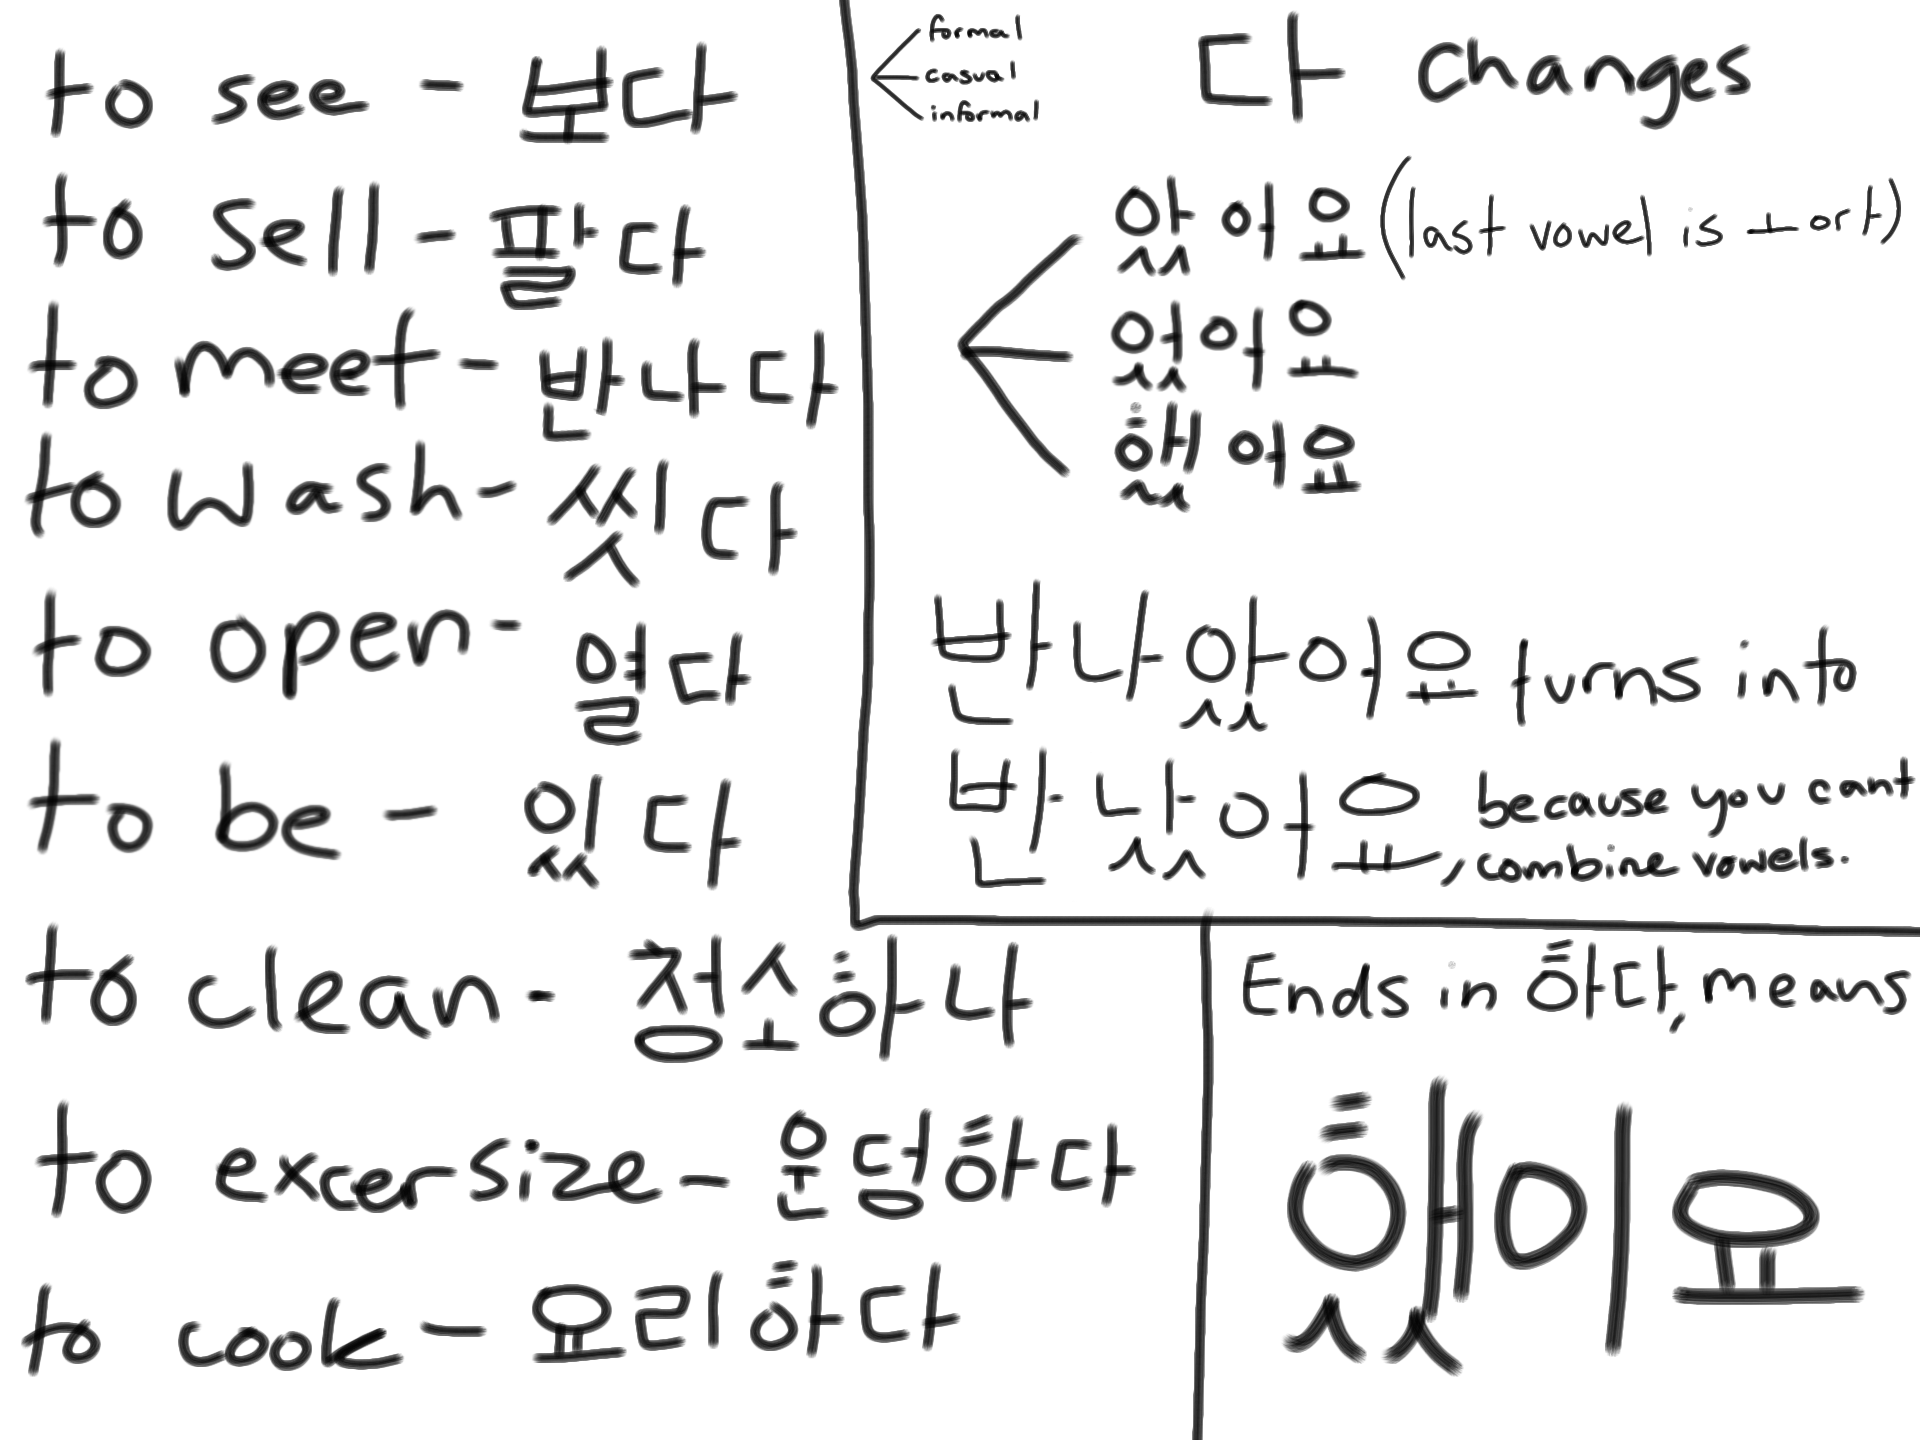 to see - 보다
to sell - 팔다
to meet - 반나다
to wash - 씻다
to open - 열다
to be - 있다
to clean - 정소하나
to excersize - 운덩하다
to cook - 요리하다
formal
casual
informal
다 changes
았어요 (last vowel is ㅗ or ㅏ)
었어요
했어요
반나았어요 turns into
반났어요, because you cant
combine vowels.
Ends in 하다, means
했이요